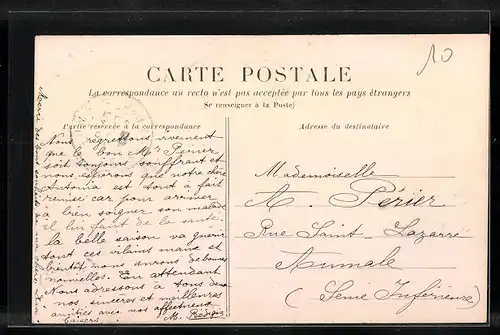 10
CARTE POSTALE
La correspondance au recto n'est pas acceptée par tous les pays étrangers
Se renseigner à la Poste)
Partie réservée à la correspondance
Adresse du destinataire
Nous regrettons vivement
que le bon Mr
soit toujours souffrant et
nous espérons que notre chère
Antonia est tout à fait
remise car pour arriver
à bien soigner son malade
il lui faut de la santé.
la belle saison va guérir
tout ces vilains maux et
bientôt nous aurons de bonnes
nouvelles. En attendant
Nous adressons à tous deux
nos sincères et meilleures
amitiés avec nos affectueux
baisers. M.
Mademoiselle
A. Périer
Rue Saint-Lazarre
Aumale
(Seine Inférieure)